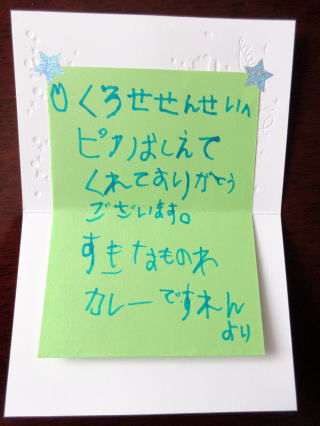 ♡くろせせんせいへ
ピアノおしえて
くれてありがとう
ございます。
すきなものわ
カレーですれん
より